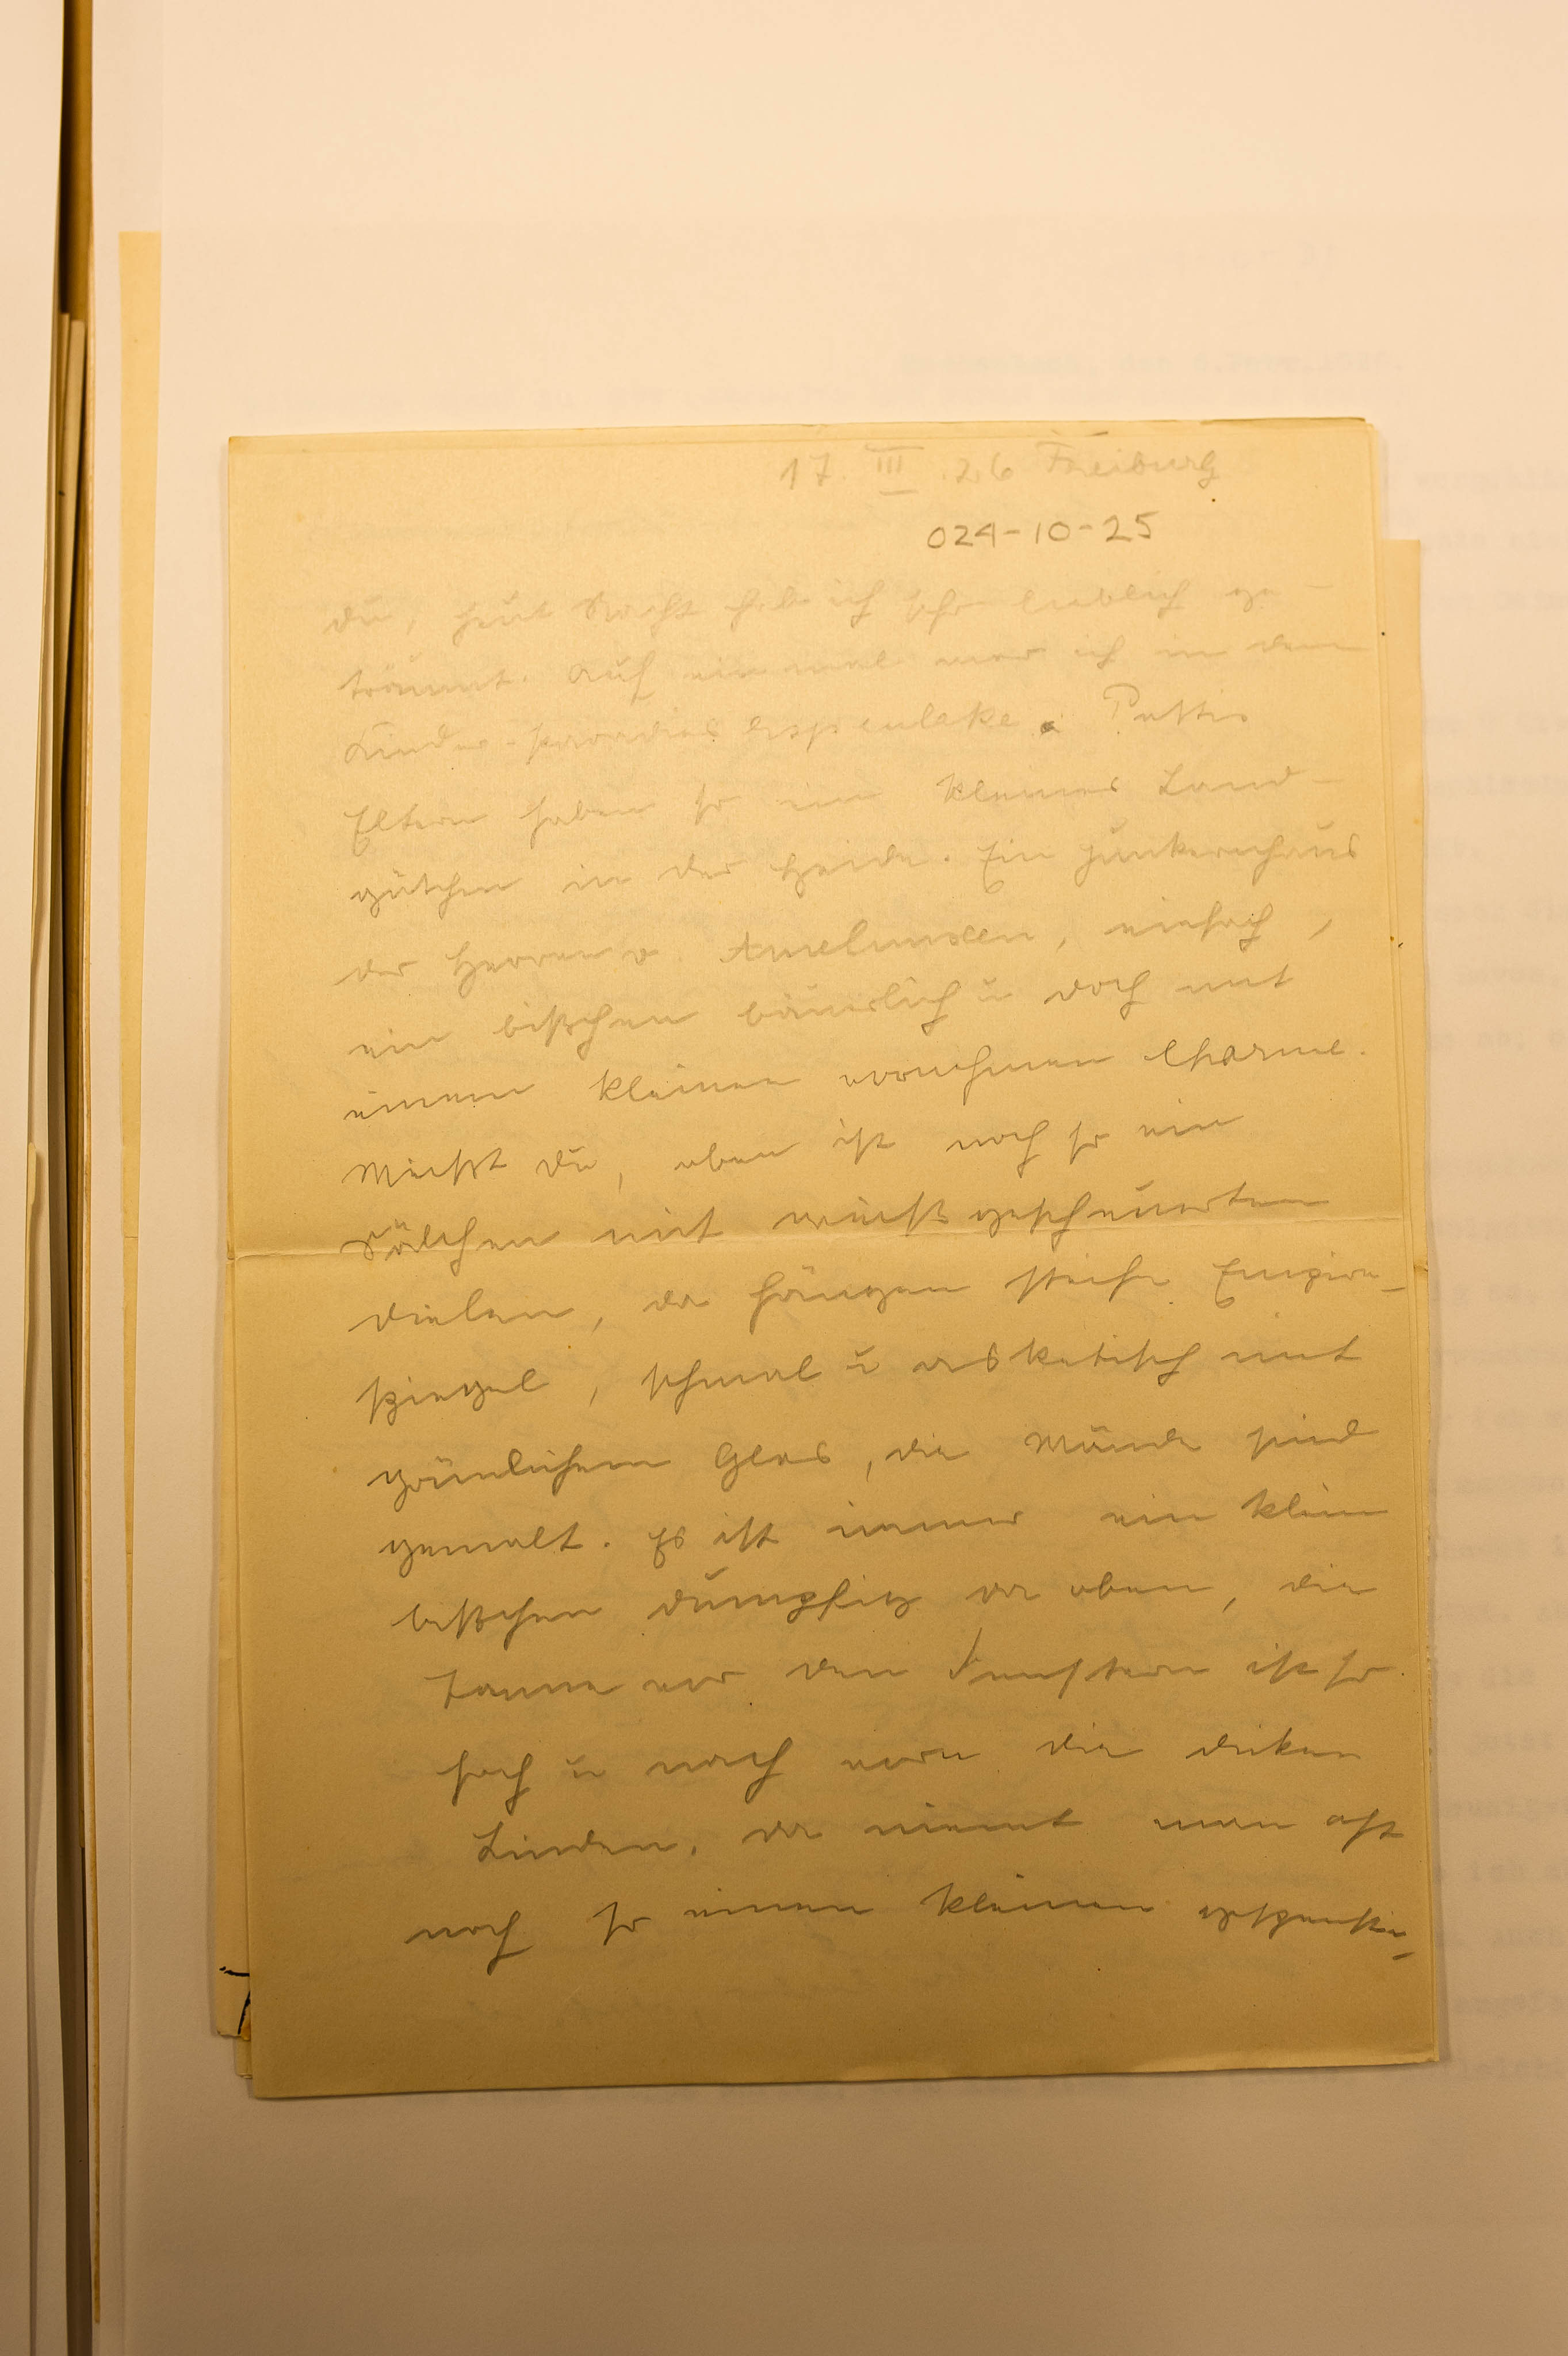 17. III .26 Freiburg
024-10-25
Du, heut Nacht hab ich sehr lieblich ge-
träumt. Auf einmal war ich in dem
Kinder-paradies Espenlake.
Eltern haben so ein kleines Land-
gütchen in der Heide. Ein Junkernhaus
der Herren v. Amelunxen, einfach,
ein bißchen bäuerlich u doch mit
einem kleinen vornehmen Charme.
Weißt Du, oben ist noch so ein
Sälchen mit weißgescheuerten
Dielen, da hängen steife Empire-
spiegel, schmal u asketisch mit
grünlichem Glas, die Wände sind
gemalt. Es ist immer ein klein
bißchen dumpfig da oben, die
Tanne vor den Fenstern ist so
hoch u nach vorn die dicken
Linden. Da nimmt man oft
noch so einen kleinen gespenster-